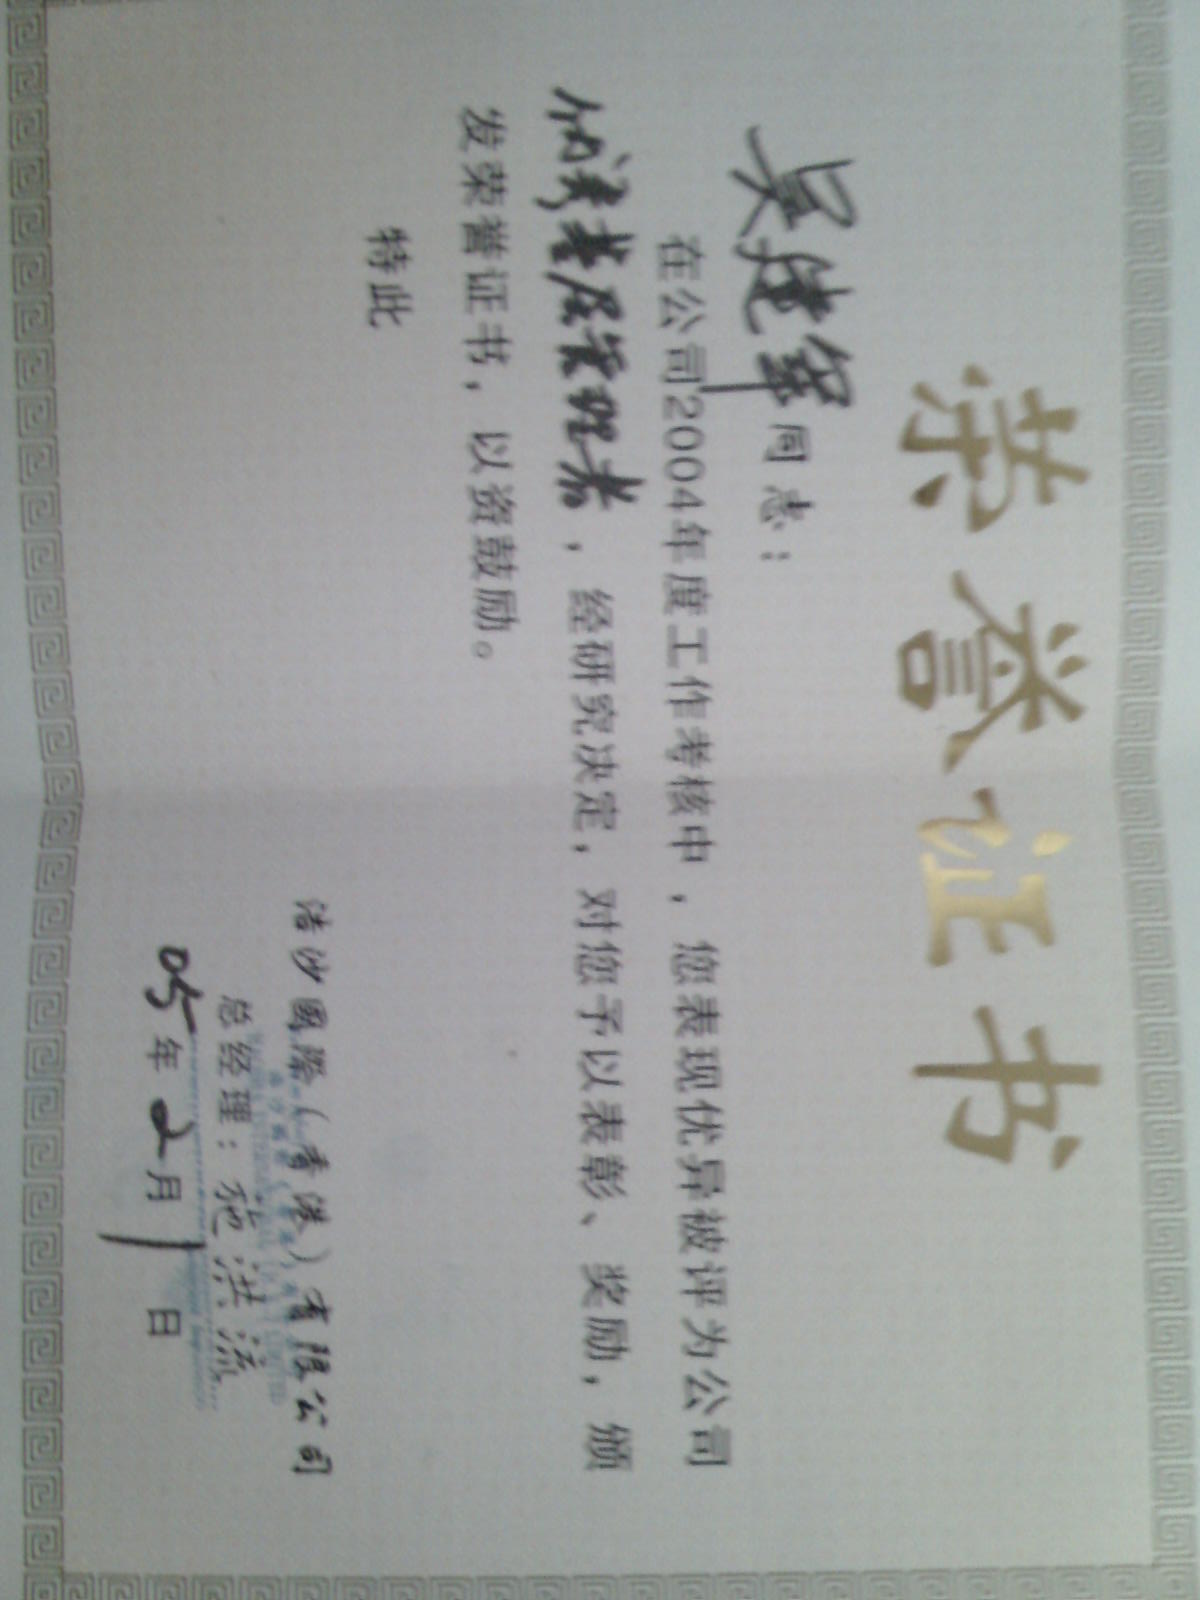 荣誉证书
吴建军同志：
在公司2004年度工作考核中，您表现优异被评为公司
优秀基层管理者，经研究决定，对您予以表彰、奖励，颁
发荣誉证书，以资鼓励。
特此
浩沙國際（香港）有限公司
总经理：施洪流
05年2月1日